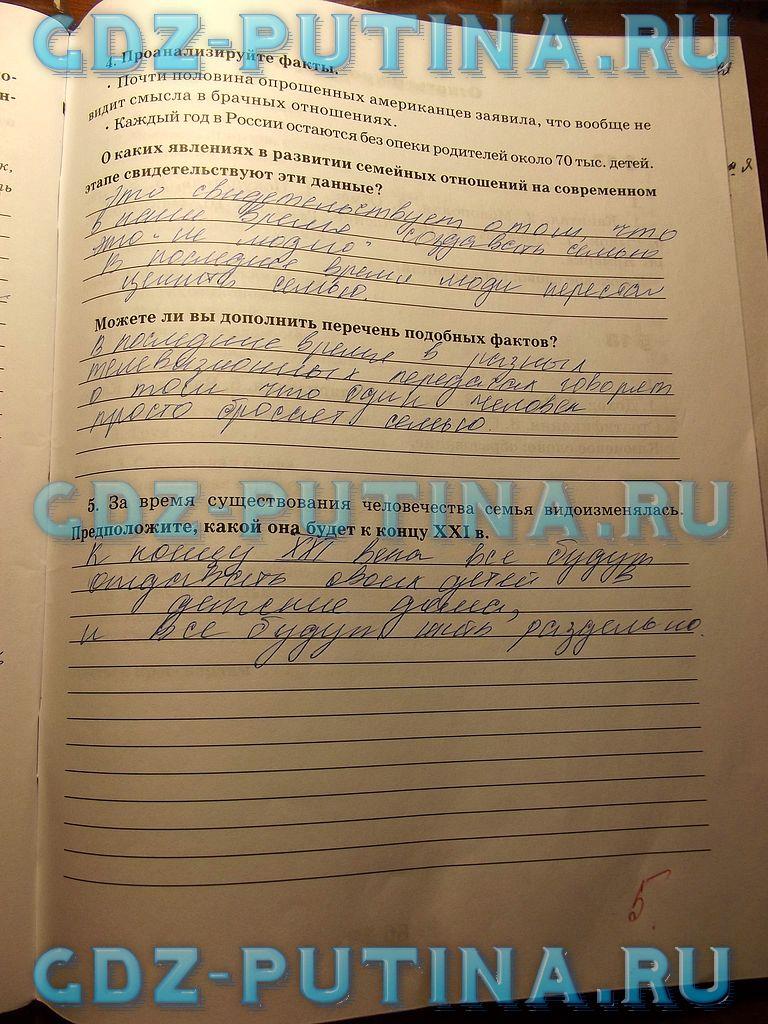 GDZ-PUTINA.RU
4. Проанализируйте факты.
· Почти половина опрошенных американцев заявила, что вообще не
видит смысла в брачных отношениях.
· Каждый год в России остаются без опеки родителей около 70 тыс. детей.
О каких явлениях в развитии семейных отношений на современном
этапе свидетельствуют эти данные?
Это свидетельствует о том что
в наше время создавать семью
это "не модно"
В последнее время люди перестали
ценить семью.
Можете ли вы дополнить перечень подобных фактов?
В последние время в разных
телевизионных передачах говорят
о том что один человек
просто бросает семью.
GDZ-PUTINA.RU
5. За время существования человечества семья видоизменялась.
Предположите, какой она будет к концу XXI в.
К концу XXI века все будут
отдавать своих детей в
детские дома,
и все будут жить раздельно.
5
GDZ-PUTINA.RU